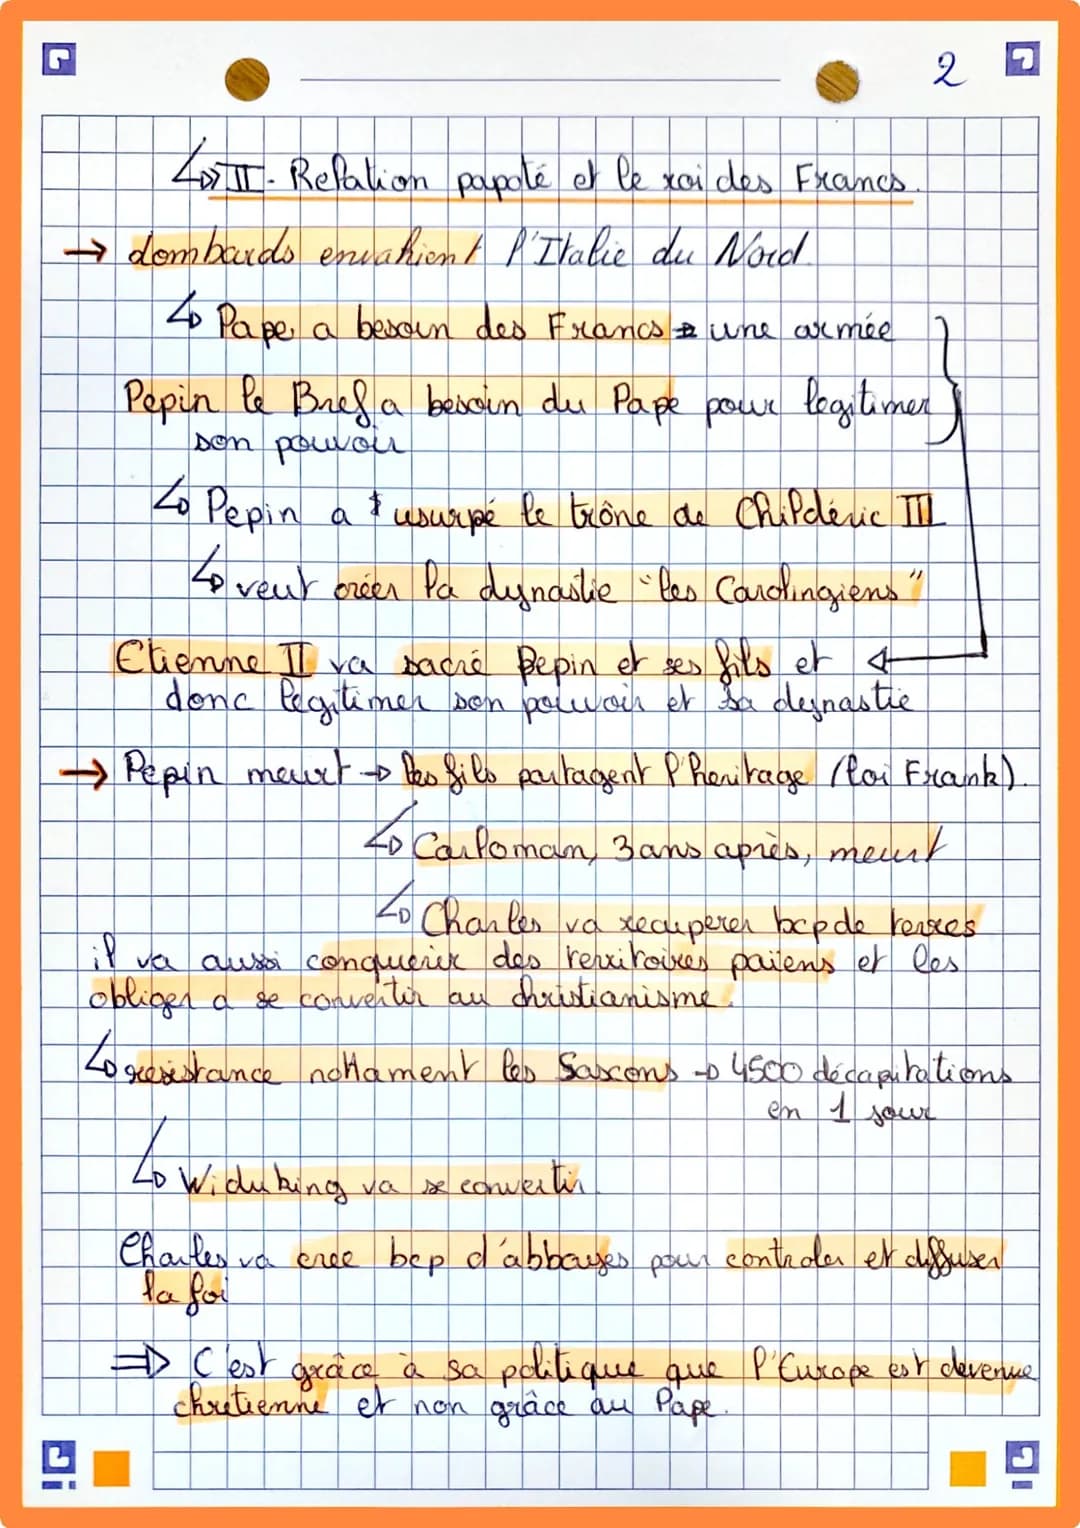 2
II - Relation papoté et le roi des Francs.
→ Lombards envahient l'Italie du Nord.
Pape a besoin des Francs = une armée
Pepin le Bref a besoin du Pape pour legitimer
son pouvoir
Pepin a usurpé le trône de Childéric III
veut créer la dynastie "les Carolingiens"
Etienne II va sacré Pepin et ses fils et
donc legitimer son pouvoir et sa dynastie
→ Pepin meurt → les fils partagent l'heritage (loi Frank).
Carloman, 3 ans après, meurt
Charles va recuperer bcp de terres
il va aussi conquerir des territoires païens et les
obliger a se convertir au christianisme.
resistance nottament les Saxons → 4500 décapitations
en 1 jour
Widuking va se convertir.
Charles va cree bcp d'abbayes pour controler et diffuser
la foi
⇒ C'est grâce à sa politique que l'Europe est devenue
chretienne et non grâce au Pape.